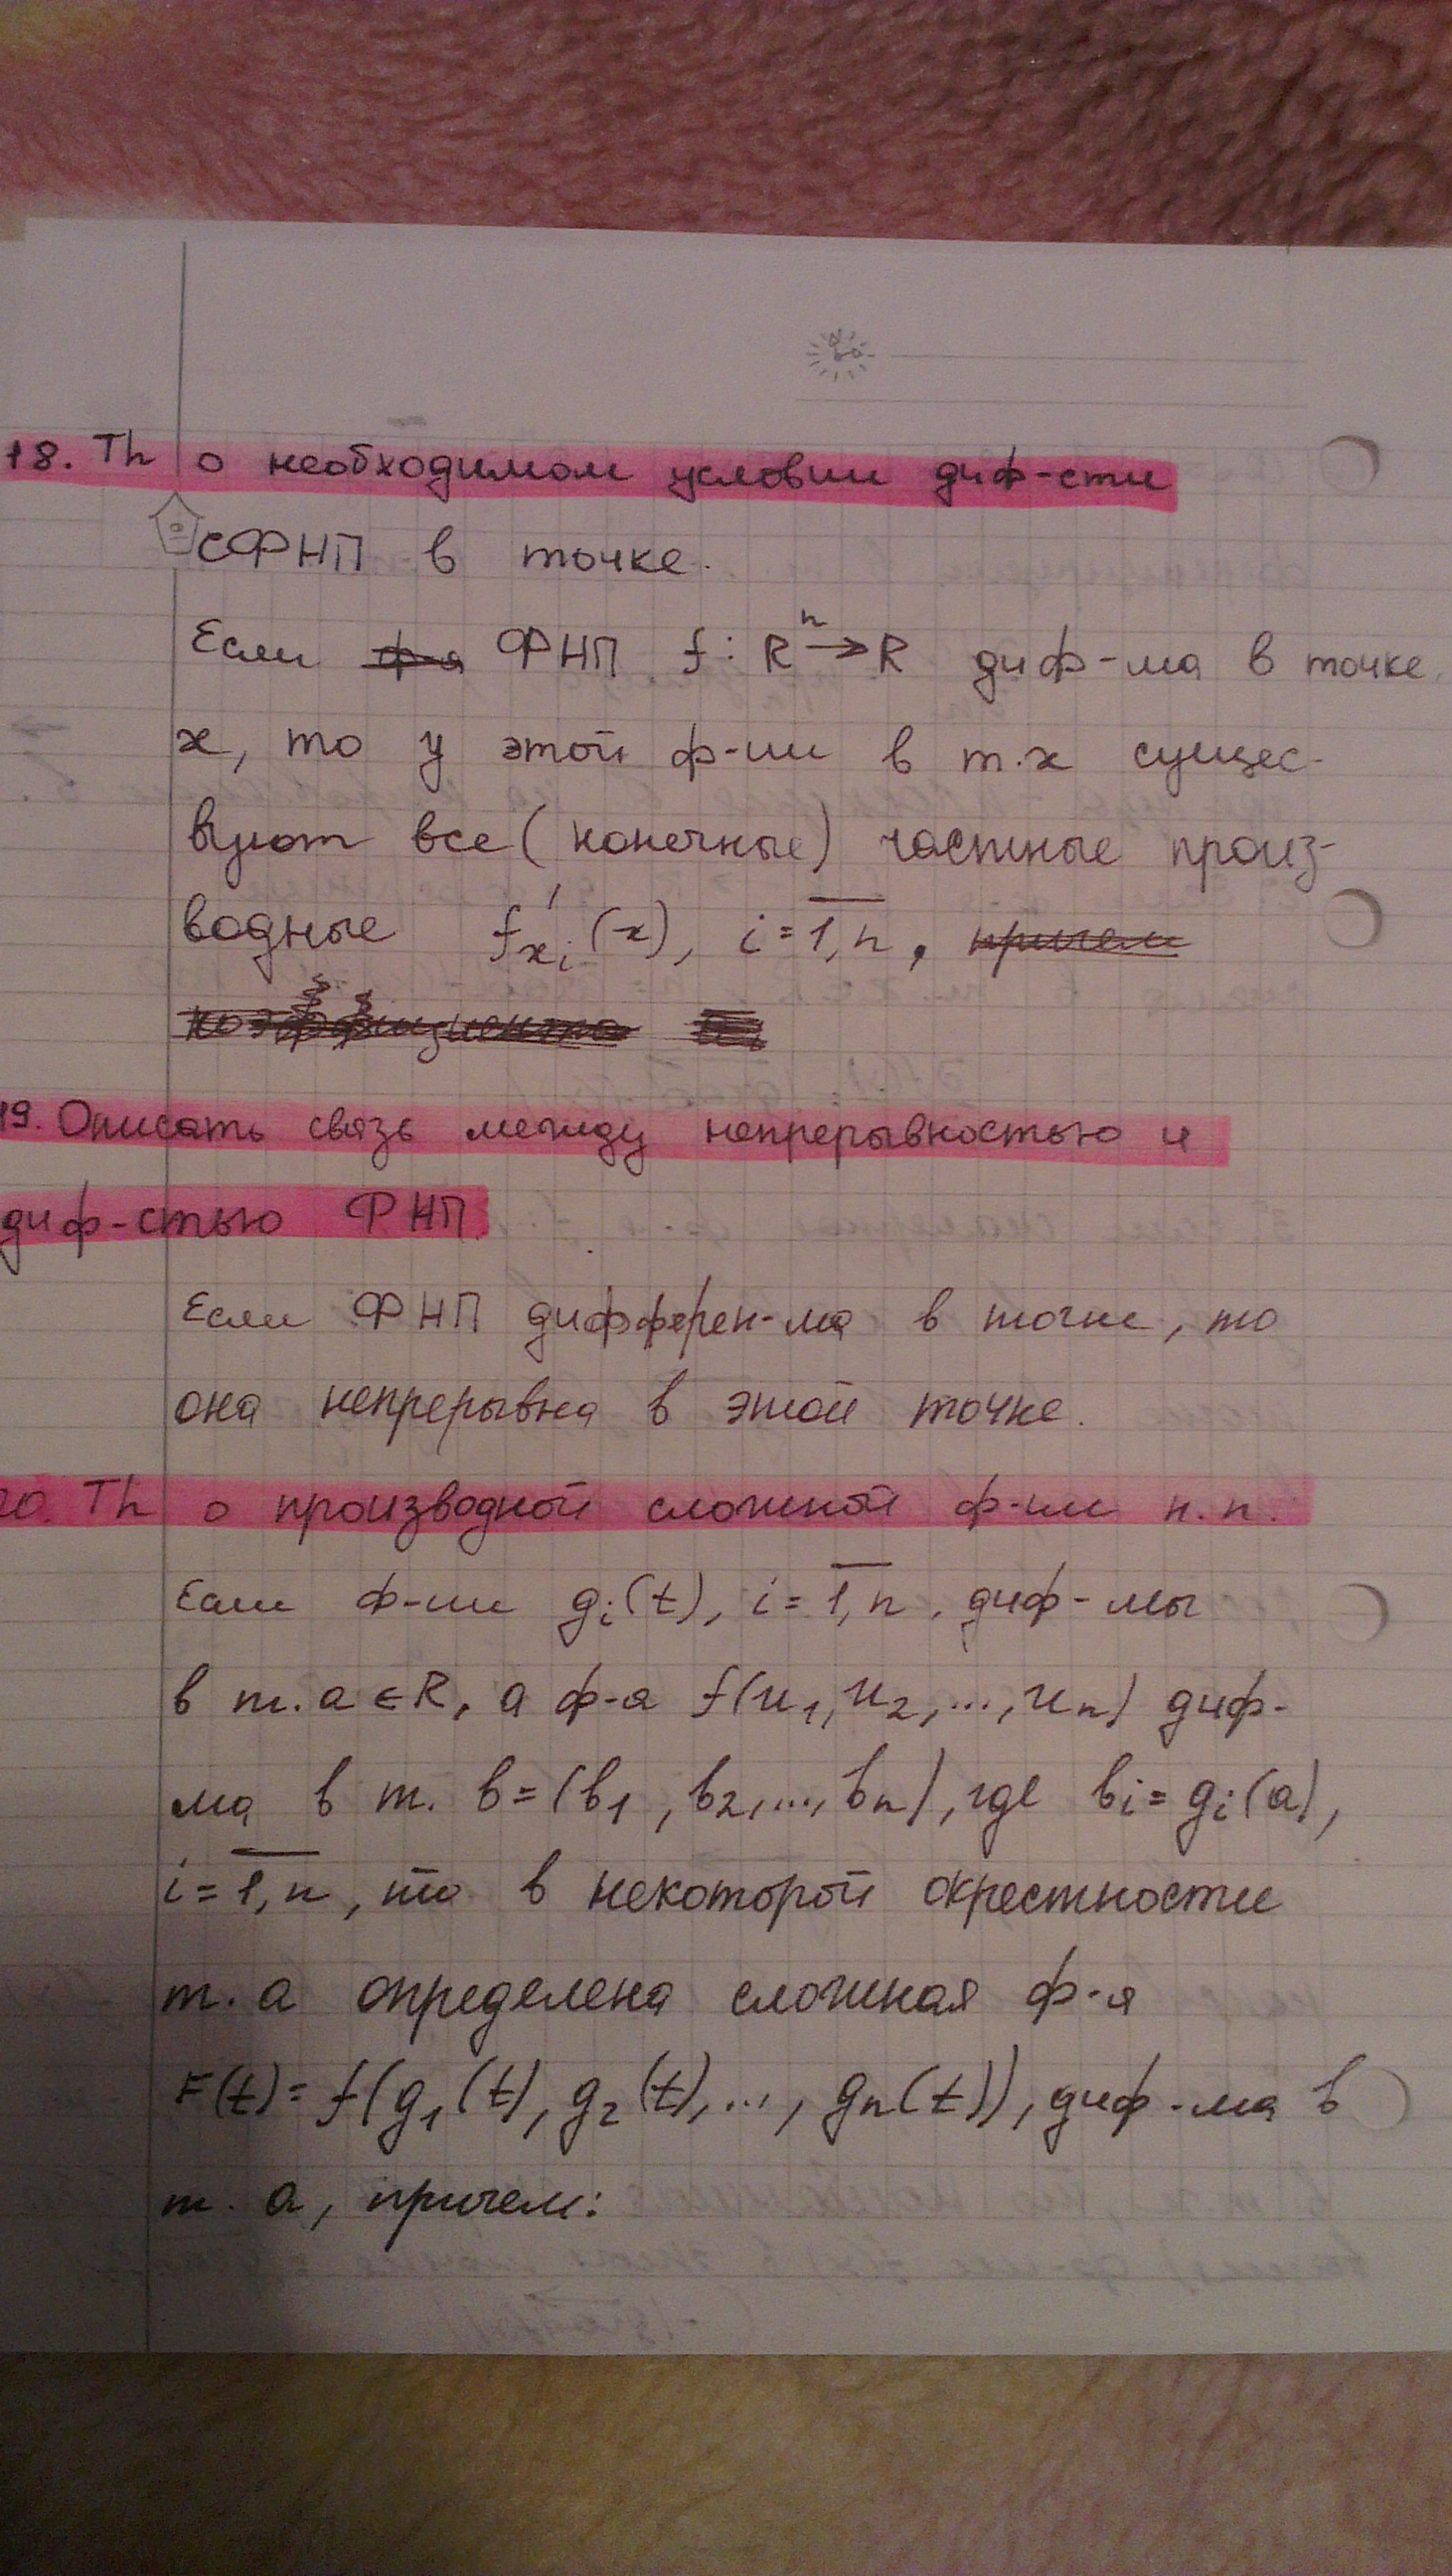 18. Th о необходимом условии диф-сти
СФНП в точке.
Если ф-я ФНП f: Rⁿ→R диф-ма в точке
x, то у этой ф-ии в т.x сущес-
вуют все (конечные) частные произ-
водные f'xᵢ(x), i=1,n, причем
коэффициенты
19. Описать связь между непрерывностью и
диф-стью ФНП.
Если ФНП дифферен-ма в точке, то
она непрерывна в этой точке.
20. Th о производной сложной ф-ии н.п.
Если ф-ии gᵢ(t), i=1,n, диф-мы
в т. a∈R, а ф-я f(u₁,u₂,...,uₙ) диф-
ма в т. b=(b₁,b₂,...,bₙ), где bᵢ=gᵢ(a),
i=1,n, то в некоторой окрестности
т. a определена сложная ф-я
F(t)=f(g₁(t),g₂(t),...,gₙ(t)), диф-ма в
т. a, причем: